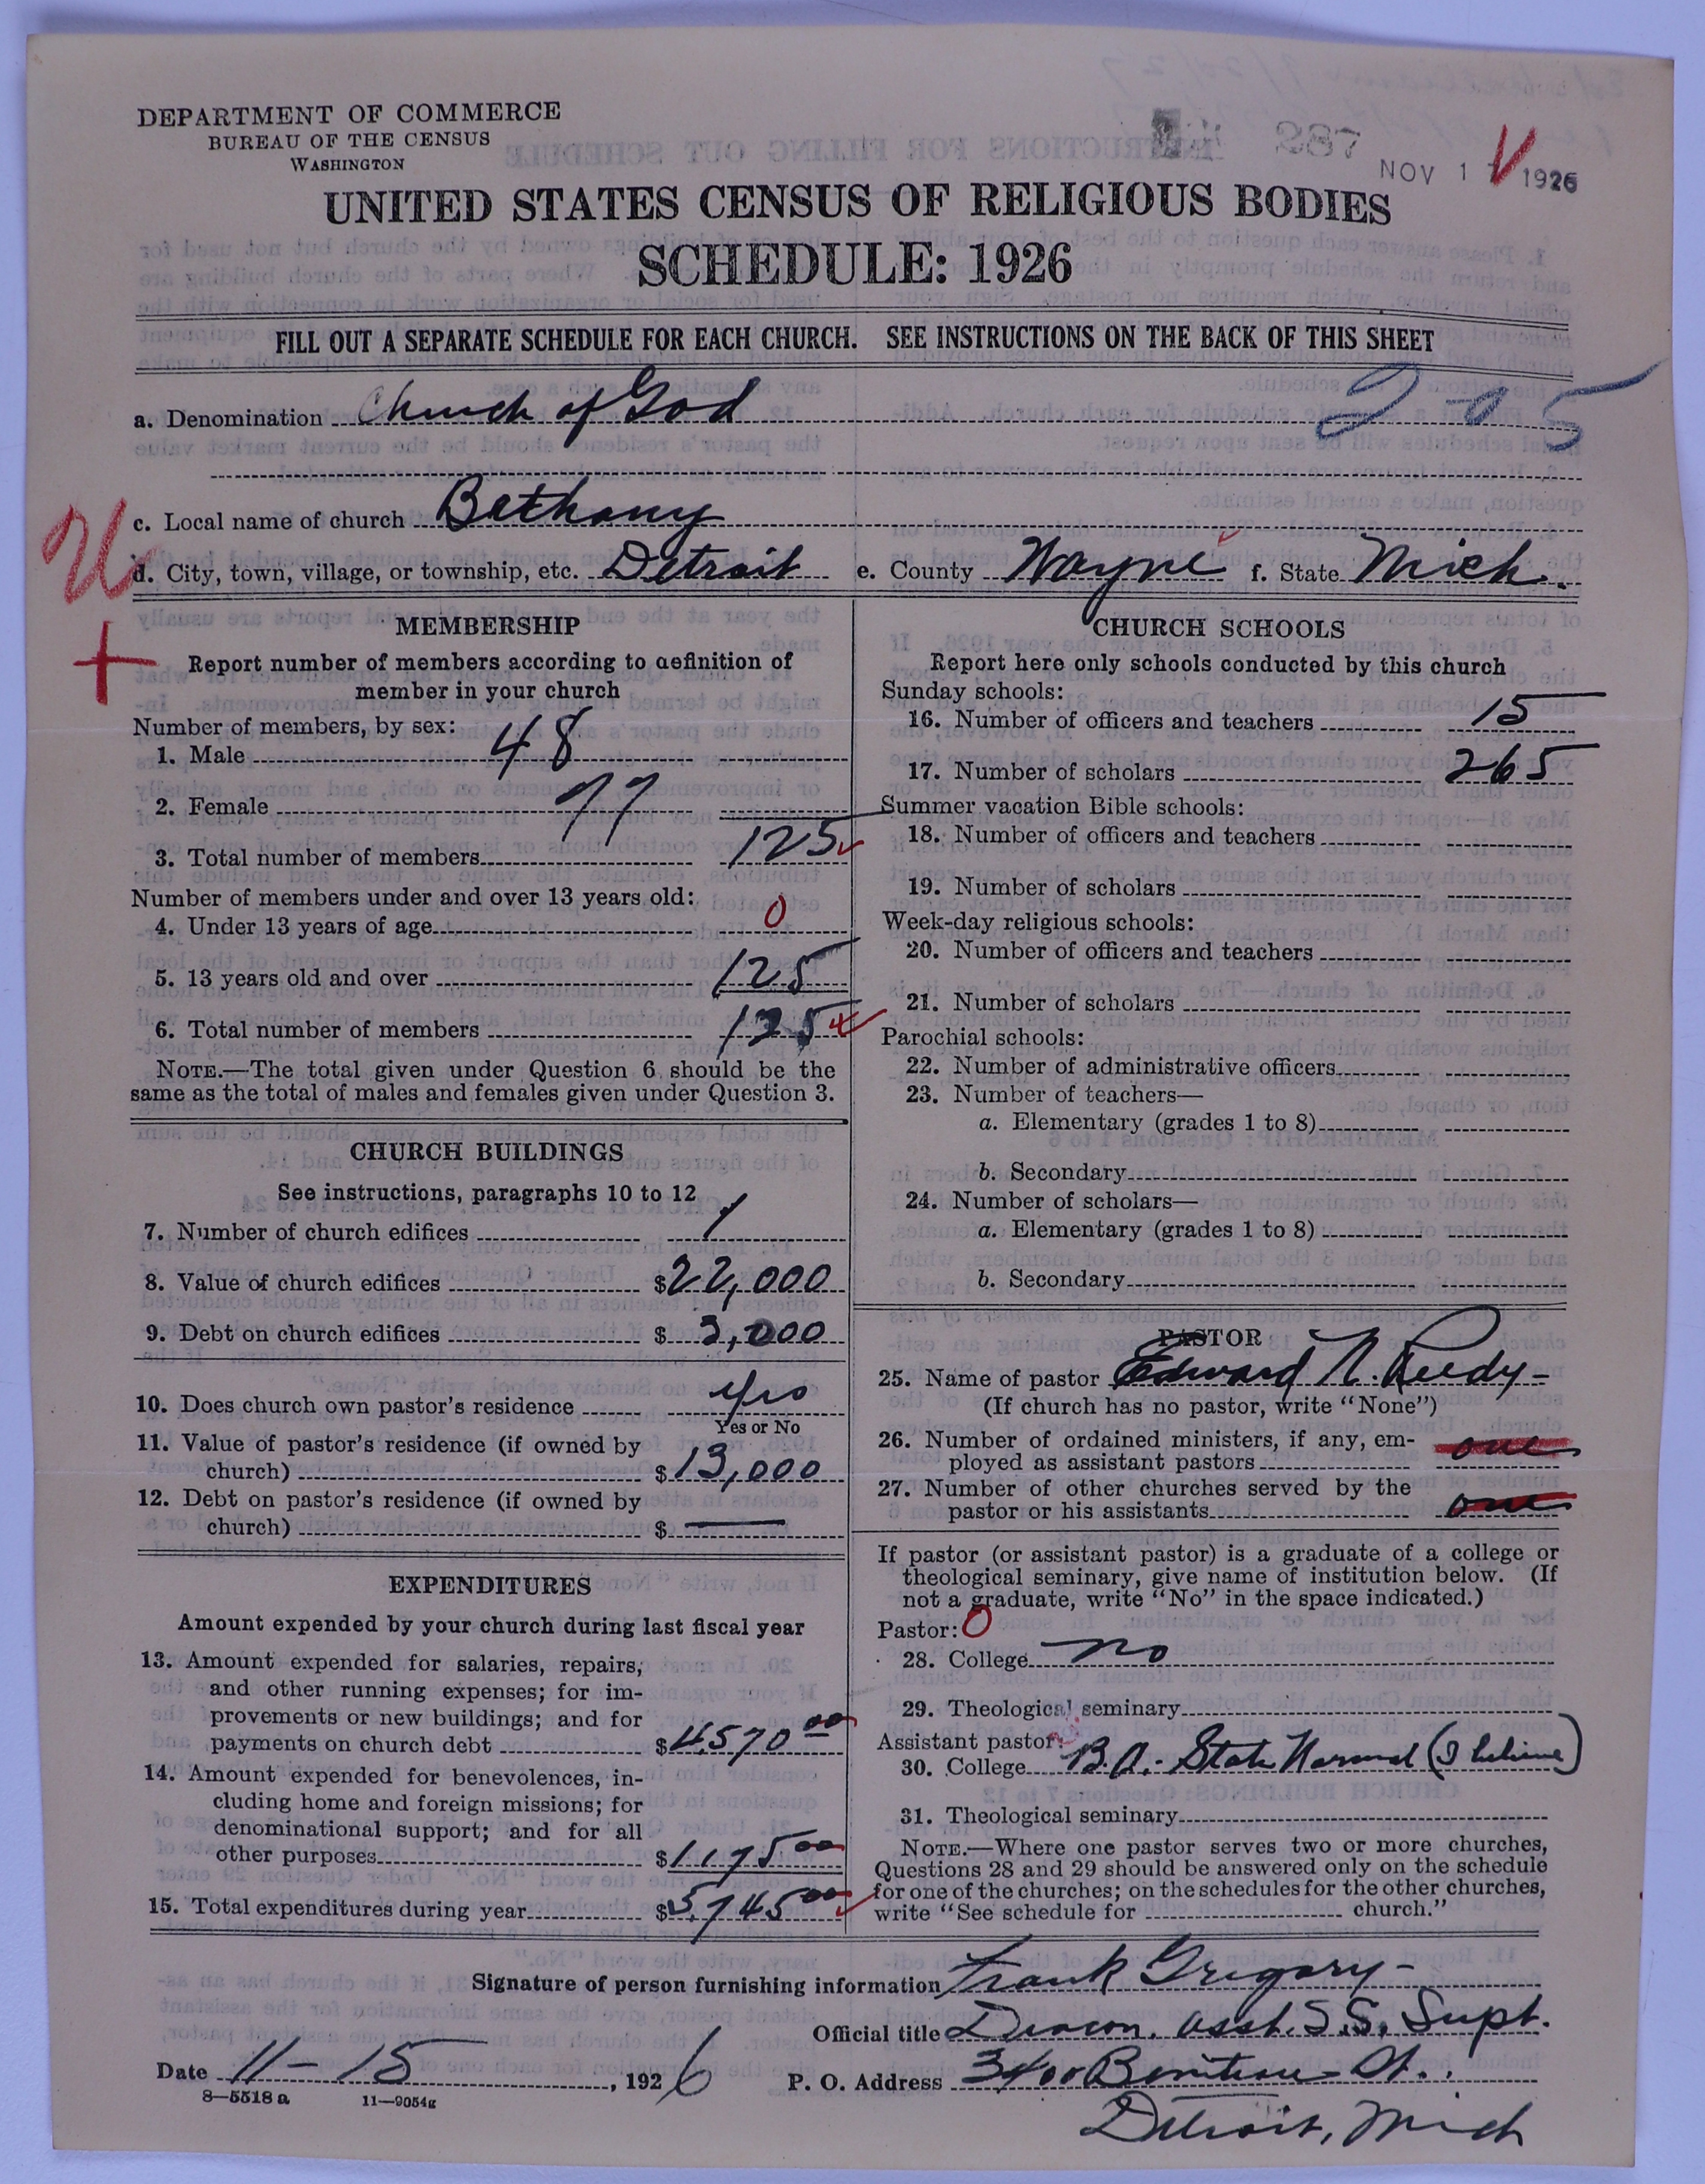 DEPARTMENT OF COMMERCE
BUREAU OF THE CENSUS
WASHINGTON
287
NOV 1 1926
UNITED STATES CENSUS OF RELIGIOUS BODIES
SCHEDULE: 1926
FILL OUT A SEPARATE SCHEDULE FOR EACH CHURCH. SEE INSTRUCTIONS ON THE BACK OF THIS SHEET
a. Denomination Church of God 2-0-5
c. Local name of church Bethany
d. City, town, village, or township, etc. Detroit e. County Wayne f. State Mich.
MEMBERSHIP
Report number of members according to definition of
member in your church
Number of members, by sex:
1. Male 48
2. Female 77
3. Total number of members 125
Number of members under and over 13 years old:
4. Under 13 years of age 0
5. 13 years old and over 125
6. Total number of members 125
NOTE.—The total given under Question 6 should be the
same as the total of males and females given under Question 3.
CHURCH BUILDINGS
See instructions, paragraphs 10 to 12
7. Number of church edifices 1
8. Value of church edifices $22,000
9. Debt on church edifices $3,000
10. Does church own pastor's residence yes
Yes or No
11. Value of pastor's residence (if owned by
church) $13,000
12. Debt on pastor's residence (if owned by
church) $ —
EXPENDITURES
Amount expended by your church during last fiscal year
13. Amount expended for salaries, repairs,
and other running expenses; for im-
provements or new buildings; and for
payments on church debt $4,570 00
14. Amount expended for benevolences, in-
cluding home and foreign missions; for
denominational support; and for all
other purposes $1,175 00
15. Total expenditures during year $5,745 00
CHURCH SCHOOLS
Report here only schools conducted by this church
Sunday schools:
16. Number of officers and teachers 15
17. Number of scholars 265
Summer vacation Bible schools:
18. Number of officers and teachers
19. Number of scholars
Week-day religious schools:
20. Number of officers and teachers
21. Number of scholars
Parochial schools:
22. Number of administrative officers
23. Number of teachers—
a. Elementary (grades 1 to 8)
b. Secondary
24. Number of scholars—
a. Elementary (grades 1 to 8)
b. Secondary
PASTOR
25. Name of pastor Edward N. Reedy-
(If church has no pastor, write "None")
26. Number of ordained ministers, if any, em-
ployed as assistant pastors one
27. Number of other churches served by the
pastor or his assistants one
If pastor (or assistant pastor) is a graduate of a college or
theological seminary, give name of institution below. (If
not a graduate, write "No" in the space indicated.)
Pastor: 0
28. College no
29. Theological seminary
Assistant pastor:
30. College B.A. State Normal (I believe)
31. Theological seminary
NOTE.—Where one pastor serves two or more churches,
Questions 28 and 29 should be answered only on the schedule
for one of the churches; on the schedules for the other churches,
write "See schedule for church."
Signature of person furnishing information Frank Gregory-
Official title Deacon. asst. S.S. Supt.
Date 11-15, 1926 P. O. Address 3400 St.
Detroit, Mich
8—5518 a 11—9054g